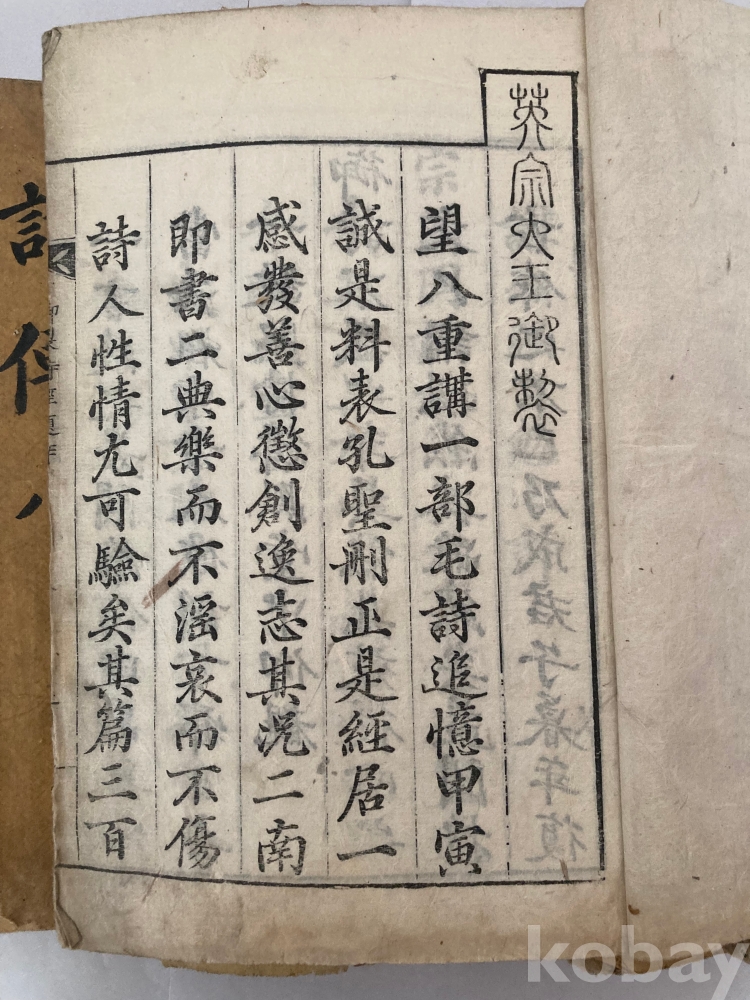 英宗大王御製
望八重講一部毛詩追憶甲寅
誠是料表孔聖刪正是經居一
感發善心懲創逸志其況二南
即書二典樂而不滛哀而不傷
詩人性情尤可驗矣其篇三百
kobay